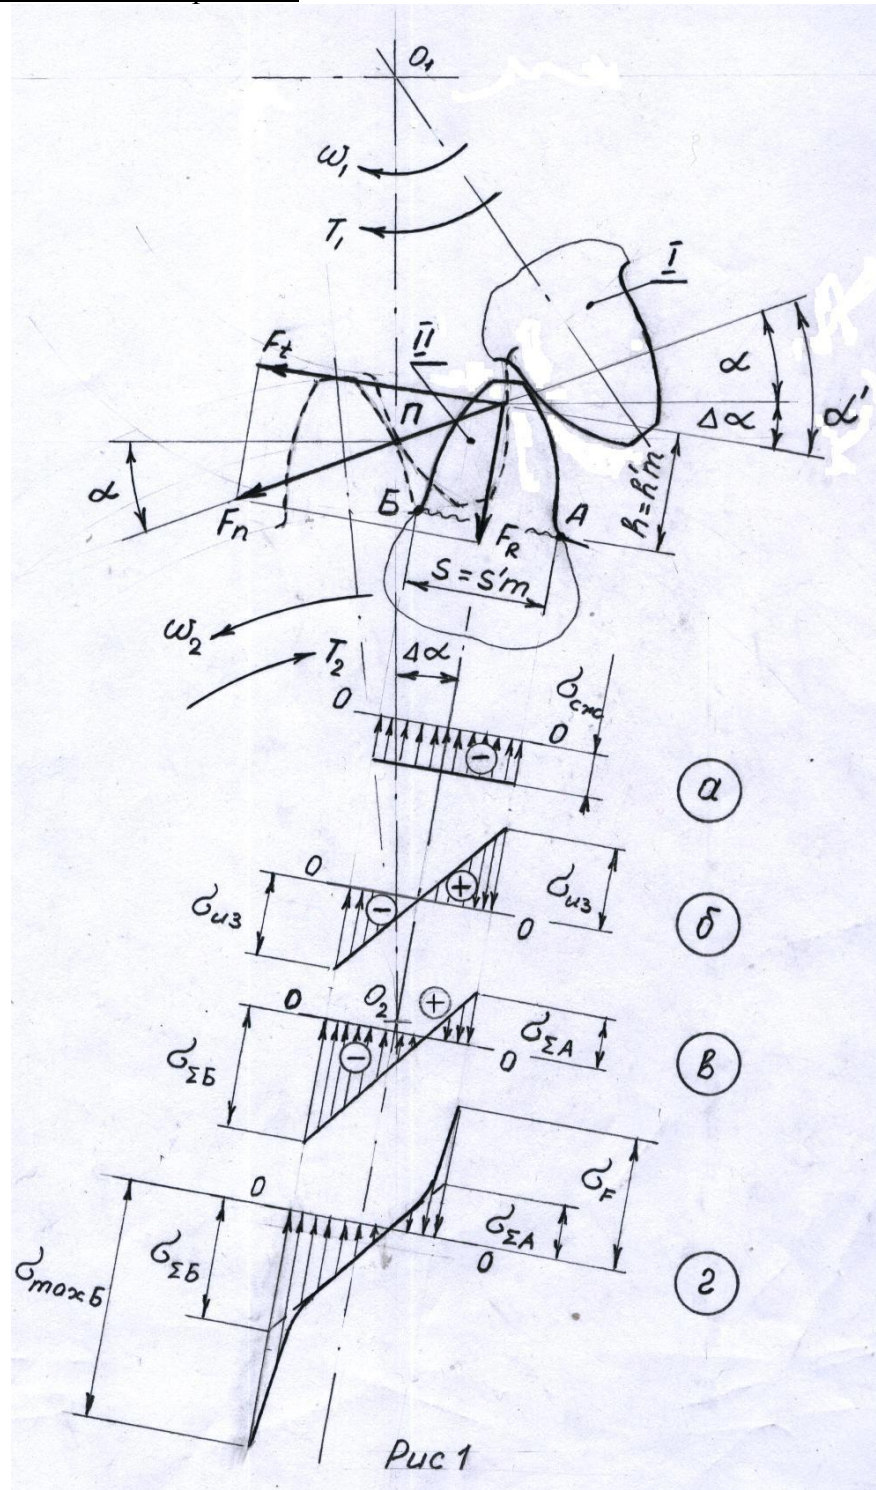 O₁
ω₁
T₁
I
II
Fₜ
П
α
Δα
α'
α
Fₙ
Б
А
F_R
h=h'm
S=S'm
ω₂
T₂
Δα
σсж
0
0
а
0
σиз
σиз
0
б
0
O₂
σΣБ
σΣА
0
в
0
σF
σΣА
σΣБ
σmaxБ
0
г
Рис 1